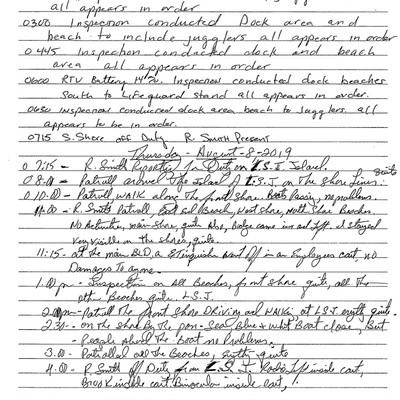 all appears in order
0300 Inspection conducted Dock area and
beach to include jugglers all appears in order
0445 Inspection conducted dock and beach
area all appears in order
0600 RTV Battery Inspection conducted dock beaches
South to Lifeguard stand all appears in order.
0650 Inspection conducted dock area beach to Jugglers. all
appears to be in order.
0715 S. Shore off Duty R. Smith Present
Thursday - August - 8 - 2019
07:15 - R. Smith Reported In Duty on L.S.J. Island.
08:00 - Patroll around the Island of L.S.J. on The Shore Lines.
010:00 - Patroll WALK along The front Shore. Boats Passing, no problems.
11:00 - R. Smith Patroll Beach, West Shore, North Shore Beaches.
No Activities, main Shore, quite Also, I stayed
Very visible on the shores, quite.
11:15 - at the main BLD, a Extinguisher Went off in a Employees cart, no
Damages To Anyone.
1:00 pm - Inspection on All Beaches, front shore quite, all The
other Beaches quite. L.S.J.
2:00 pm - Patroll The front Shore Driving and Walking at L.S.J. quite.
2:30 - on the Shore By The Blue & White Boat close, But
People aboard The Boat no Problems.
3:00 - Patrolled all The Beaches, quite
4:00 - R. Smith off Duty from L.S.J. Radio Left inside cart,
Kindle cart. Binocular inside cart,